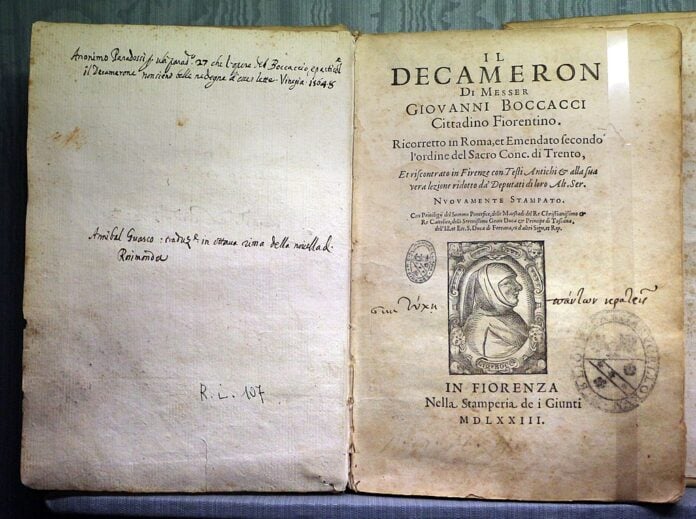 Anonimo Paradossi suli parad.º 27 che l'opere del Boccaccio, e partic.
il Decamerone non sieno belle ne degne d'esser lette Vinegia
Annibal Guasco: traduz.e in ottava rima della novella di
R. L. 107
IL
DECAMERON
DI MESSER
GIOVANNI BOCCACCI
Cittadino Fiorentino.
Ricorretto in Roma, et Emendato secondo
l'ordine del Sacro Conc. di Trento,
Et riscontrato in Firenze con Testi Antichi & alla sua
vera lezione ridotto da' Deputati di loro Alt. Ser.
NVOVAMENTE STAMPATO.
Con Privilegii del Sommo Pontefice, delle Maestà del Re Christianissimo &
Re Cattolico, delli Serenissimi Gran Duca & Principe di Toscana,
dell'Ill. et Ecc. S. Duca di Ferrara, et d'altri Sign. et Rep.
τύχη πάντων κρατεῖς
IN FIORENZA
Nella Stamperia de i Giunti
MDLXXIII.